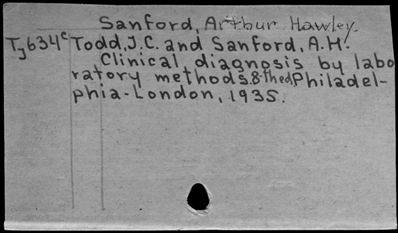 Sanford, Arthur Hawley.
Tj634c Todd, J.C. and Sanford, A.H.
Clinical diagnosis by labo
ratory methods. 8thed, Philadel-
phia-London, 1935.